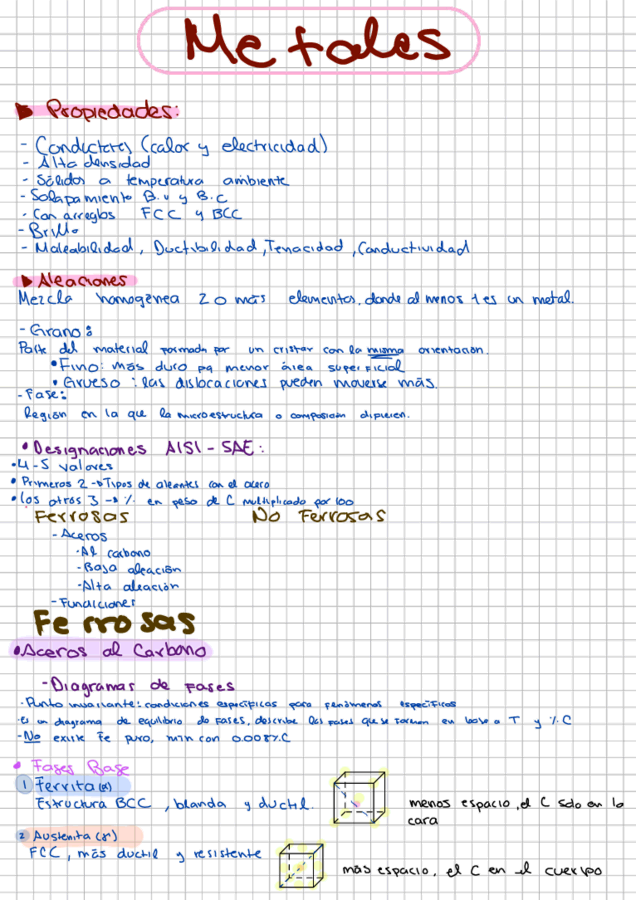 Metales
▶ Propiedades:
- Conductores (calor y electricidad)
- Alta densidad
- Sólidos a temperatura ambiente
- Solapamiento B.v y B.c
- Con arreglos FCC y BCC
- Brillo
- Maleabilidad, Ductibilidad, Tenacidad, Conductividad
▶ Aleaciones
Mezcla homogénea 2 o más elementos, donde al menos 1 es un metal.
- Grano:
Parte del material formada por un cristal con la misma orientación.
• Fino: más duro pq menor área superficial
• Grueso: las dislocaciones pueden moverse más.
- Fase:
Región en la que la microestructura o composición difieren.
• Designaciones AISI - SAE:
• 4-5 valores
• Primeros 2 → Tipos de aleantes con el acero
• Los otros 3 → % en peso de C multiplicado por 100
Ferrosas No Ferrosas
- Aceros
• Al carbono
- Baja aleación
- Alta aleación
- Fundiciones
Ferrosas
• Aceros al Carbono
- Diagramas de Fases
• Punto invariante: condiciones específicas para fenómenos específicos
• Es un diagrama de equilibrio de fases, describe las fases que se forman en base a T y %C
- No existe Fe puro, min con 0.008%C
• Fases Base
1 Ferrita (α)
Estructura BCC, blanda y ductil.
menos espacio, el C solo en la
cara
2 Austenita (γ)
FCC, más ductil y resistente
más espacio, el C en el cuerpo